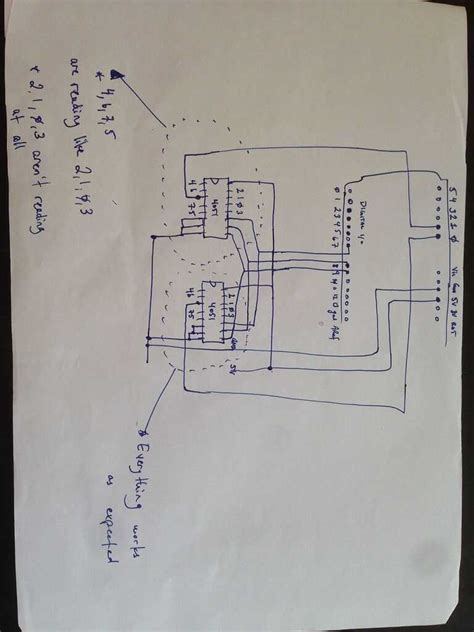 5 4 3 2 1 0
Vin Gnd 5V 3V RST
DIGITAL I/O
0 1 2 3 4 5 6 7
8 9 10 11 12 13 gnd Aref
2 1 0 3
4051
4 6
7 5
2 1 0 3
4051
4 6
7 5
5V
* 4,6,7,5
are reading like 2,1,0,3
* 2,1,0,3 aren't reading
at all
* Everything works
as expected